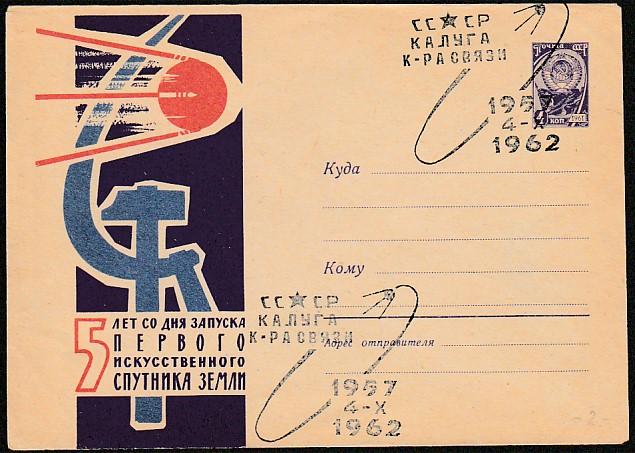 СС★СР
КАЛУГА
К-РА СВЯЗИ
1957
4-X
1962
ПОЧТА СССР
КОП. 1961
Куда
Кому
Адрес отправителя
5 ЛЕТ СО ДНЯ ЗАПУСКА
ПЕРВОГО
ИСКУССТВЕННОГО
СПУТНИКА ЗЕМЛИ
СС★СР
КАЛУГА
К-РА СВЯЗИ
1957
4-X
1962
-2-